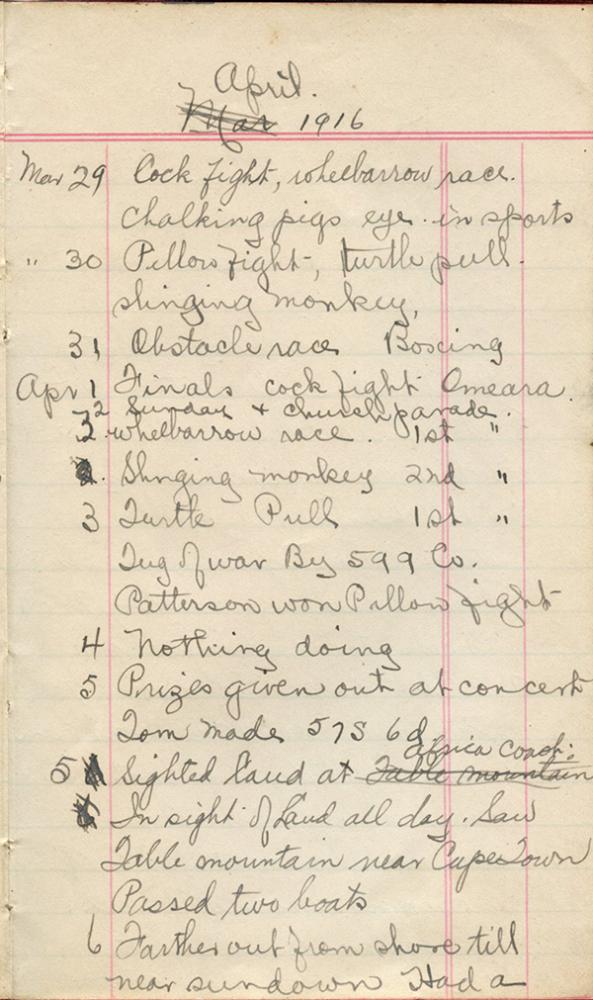 April.
Mar 1916
Mar 29 Cock fight, wheelbarrow race.
Chalking pigs eye in sports
" 30 Pillow fight, turtle pull.
slinging monkey,
31 Obstacle race Boxing
Apr 1 Finals cock fight Omeara.
2 Sunday + church parade.
3 wheelbarrow race. 1st "
Slinging monkey 2nd "
3 Turtle Pull 1st "
Tug of war By 599 Co.
Patterson won Pillow fight
4 Nothing doing
5 Prizes given out at concert
Tom made 57S 6d
africa coast:
5 Sighted land at Table mountain
In sight of Land all day. Saw
Table mountain near Cape Town
Passed two boats
6 Farther out from shore till
near sundown Had a